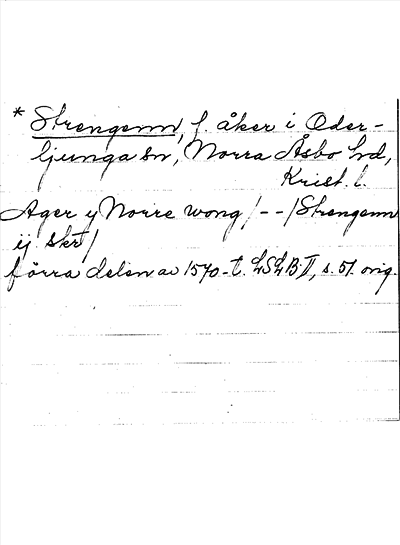 * Strengenn, f. åker i Oder-
ljunga sn, Norra Åsbo hd,
Krist. l.
Ager y Norre wong/--/Strengenn
ij skr/
förra delen av 1570-t. LSLB II, s. 51. orig.